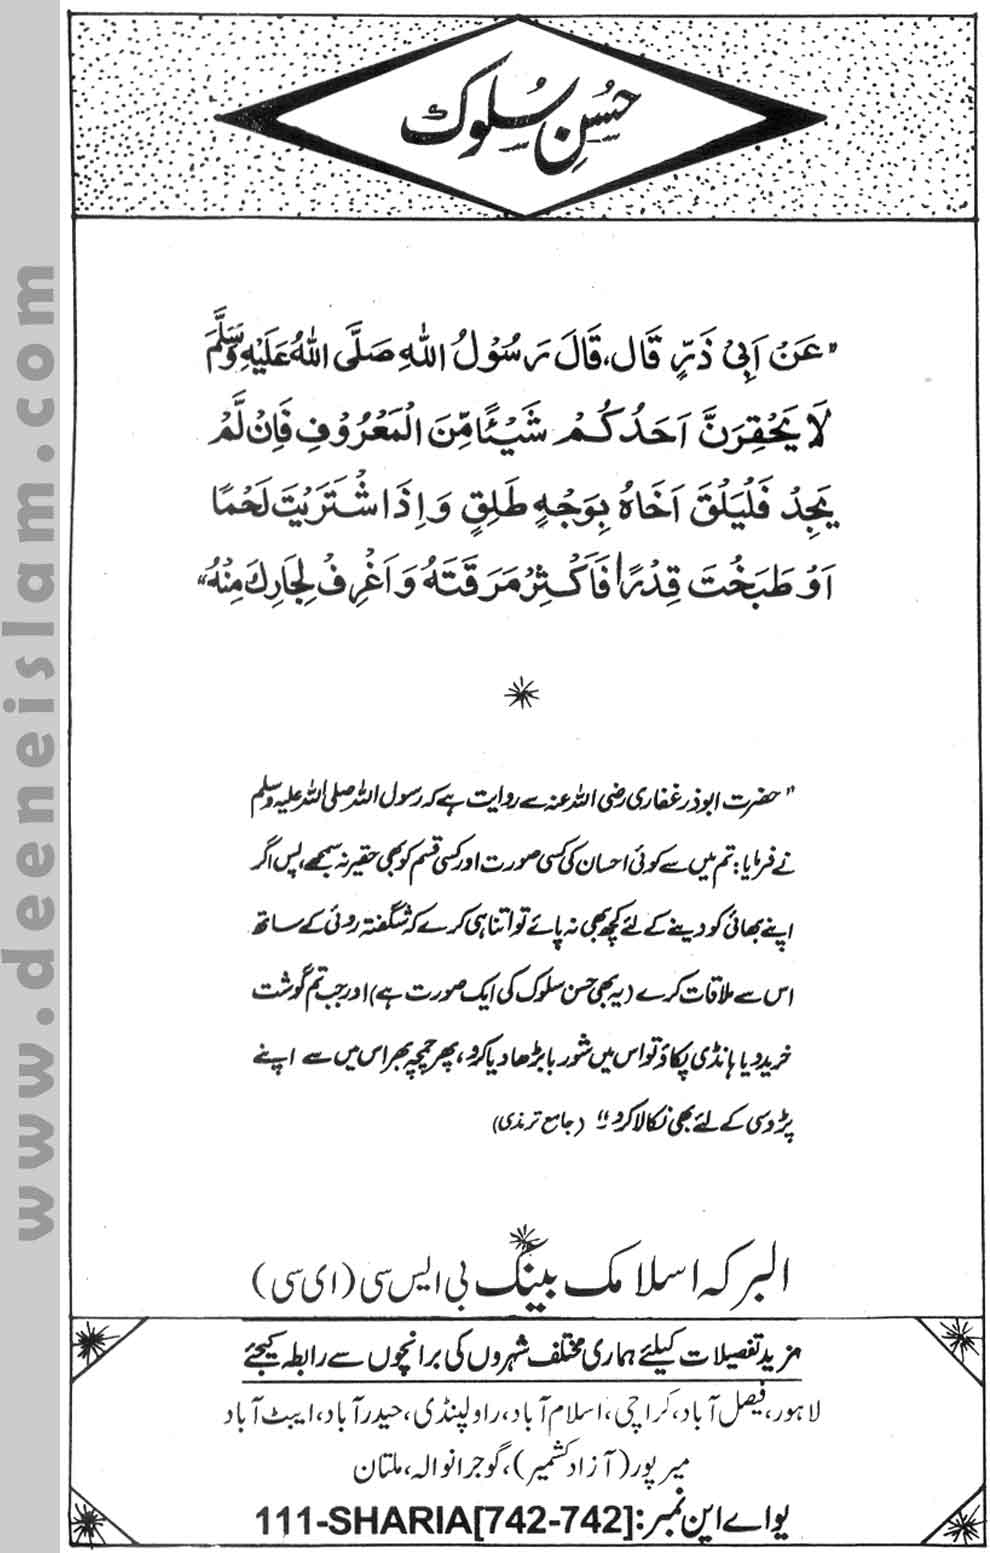 حُسنِ سُلوک
”عَنْ اَبِیْ ذَرٍّ قَالَ، قَالَ رَسُوْلُ اللهِ صَلَّی اللهُ عَلَیْهِ وَسَلَّمَ
لَا یَحْقِرَنَّ اَحَدُکُمْ شَیْئًا مِّنَ الْمَعْرُوْفِ فَاِنْ لَّمْ
یَجِدْ فَلْیَلْقَ اَخَاهُ بِوَجْهٍ طَلِقٍ وَاِذَا اشْتَرَیْتَ لَحْمًا
اَوْ طَبَخْتَ قِدْرًا فَاَکْثِرْ مَرَقَتَهُ وَاغْرِفْ لِجَارِكَ مِنْهُ“
”حضرت ابوذر غفاری رضی اللہ عنہ سے روایت ہے کہ رسول اللہ صلی اللہ علیہ وسلم
نے فرمایا: تم میں سے کوئی احسان کی کسی صورت اور کسی قسم کو بھی حقیر نہ سمجھے، پس اگر
اپنے بھائی کو دینے کے لئے کچھ بھی نہ پائے تو اتنا ہی کرے کہ شگفتہ روئی کے ساتھ
اس سے ملاقات کرے (یہ بھی حسن سلوک کی ایک صورت ہے) اور جب تم گوشت
خریدو یا ہانڈی پکاؤ تو اس میں شوربا بڑھا دیا کرو، پھر چمچہ بھر اس میں سے اپنے
پڑوسی کے لئے بھی نکالا کرو“ (جامع ترمذی)
البرکہ اسلامک بینک بی ایس سی (ای سی)
مزید تفصیلات کیلئے ہماری مختلف شہروں کی برانچوں سے رابطہ کیجئے
لاہور، فیصل آباد، کراچی، اسلام آباد، راولپنڈی، حیدرآباد، ایبٹ آباد
میرپور (آزاد کشمیر)، گوجرانوالہ، ملتان
یو اے این نمبر: 111-SHARIA[742-742]
www.deeneislam.com